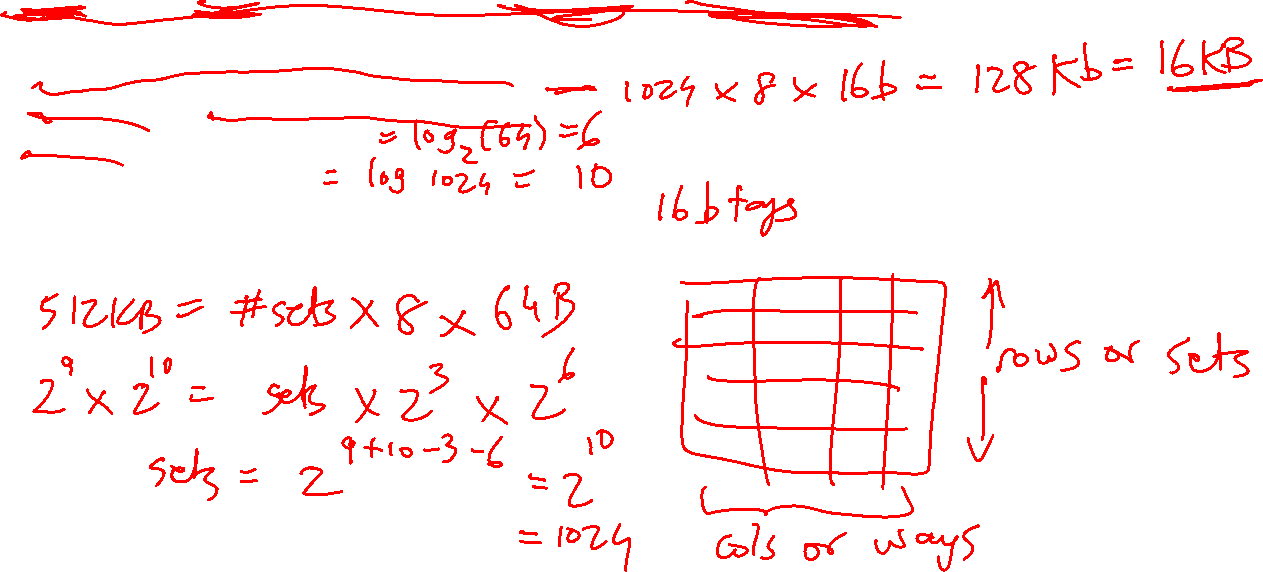 1024 × 8 × 16b = 128 Kb = 16KB
= log₂(64) = 6
= log 1024 = 10
16b tags
512KB = #sets × 8 × 64B
2⁹ × 2¹⁰ = sets × 2³ × 2⁶
sets = 2⁹⁺¹⁰⁻³⁻⁶ = 2¹⁰
= 1024
rows or sets
cols or ways